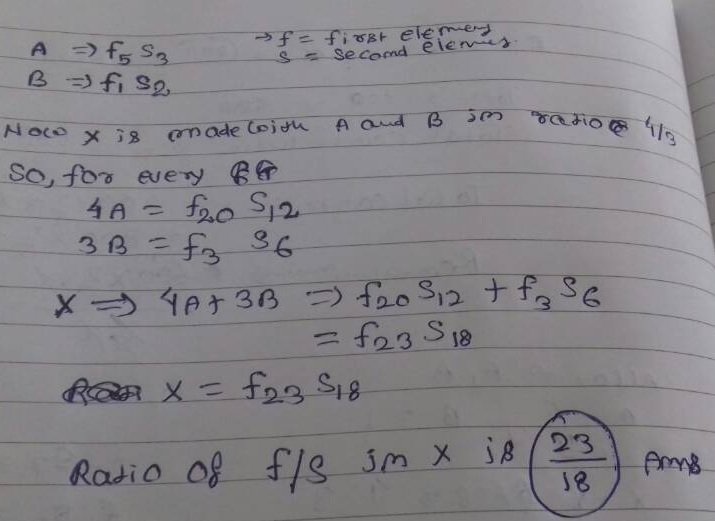 A ⇒ f₅ S₃ → f = first element
B ⇒ f₁ S₂ S = Second element
Now X is made with A and B in ratio 4/3
So, for every
4A = f₂₀ S₁₂
3B = f₃ S₆
X ⇒ 4A + 3B ⇒ f₂₀ S₁₂ + f₃ S₆
= f₂₃ S₁₈
X = f₂₃ S₁₈
Ratio of f/S in X is 23/18 Ans